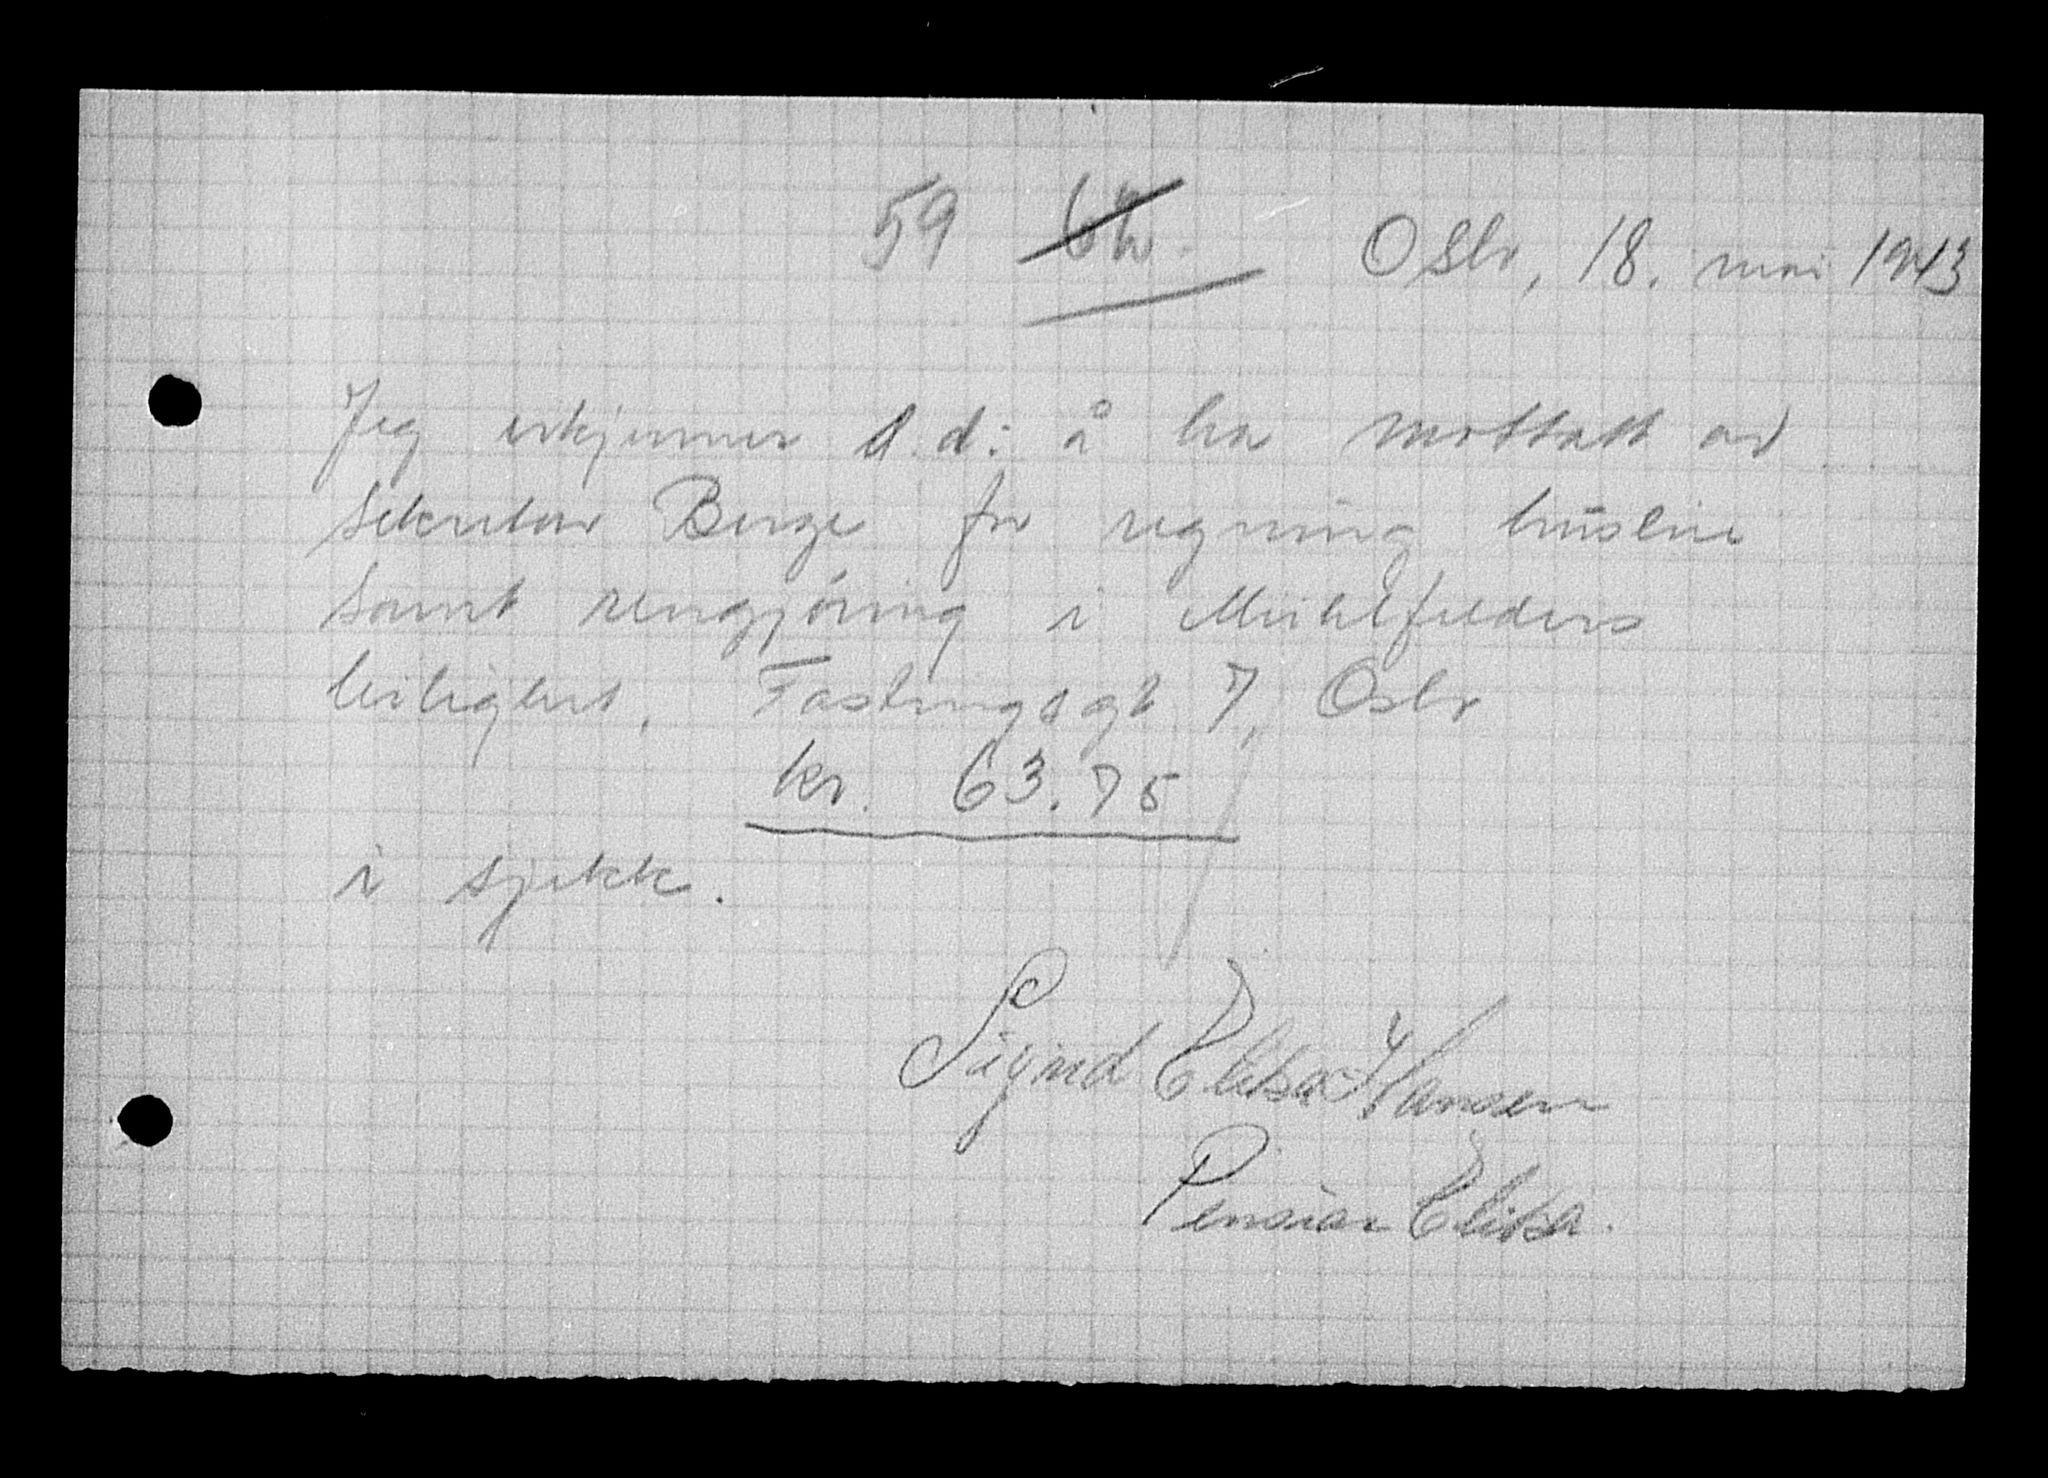 59 Oslo, 18. mai 1943
Jeg erkjenner d.d. å ha mottatt av
sekretær Berge for regning husleie
samt rengjøring i Mühlfelders
leilighet, Fastingsgt 7, Oslo
kr. 63.75
i sjekk.
Sigrid Elisa Hansen
Pension Elisa.